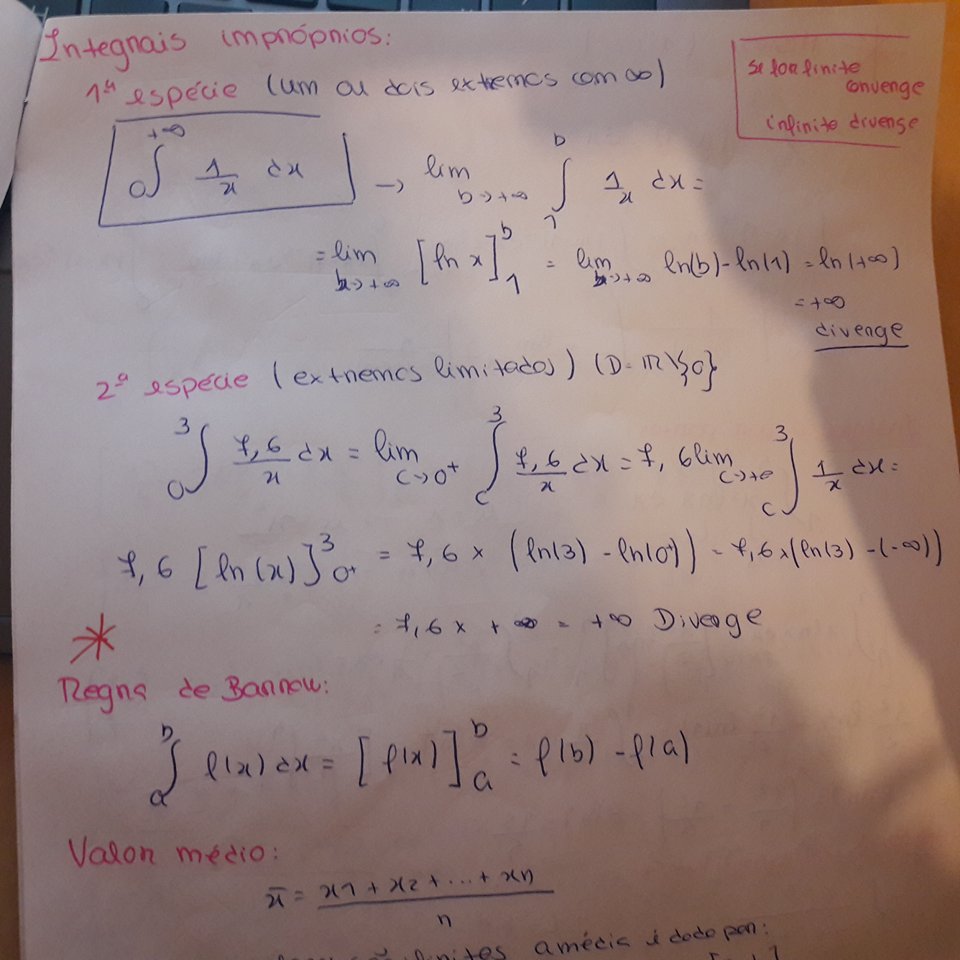 Integrais impróprios:
1ª espécie (um ou dois extremos com ∞)
se for finite
convenge
infinite divenge
∫₀^{+∞} 1/x dx → lim_{b→+∞} ∫₁^b 1/x dx =
= lim_{b→+∞} [ln x]₁^b = lim_{b→+∞} ln(b) - ln(1) = ln(+∞)
= +∞
divenge
2ª espécie (extremos limitados) (D = IR \ {0}
∫₀³ 7,6/x dx = lim_{c→0⁺} ∫_c³ 7,6/x dx = 7,6 lim_{c→+0} ∫_c³ 1/x dx =
7,6 [ln(x)]_{0⁺}³ = 7,6 × (ln(3) - ln(0⁺)) = 7,6 × (ln(3) - (-∞))
= 7,6 × + ∞ = +∞ Diverge
*
Regra de Barrow:
∫_a^b f(x) dx = [f(x)]_a^b = f(b) - f(a)
Valor médio:
x̄ = (x1 + x2 + ... + xn)/n
a média é dado por: